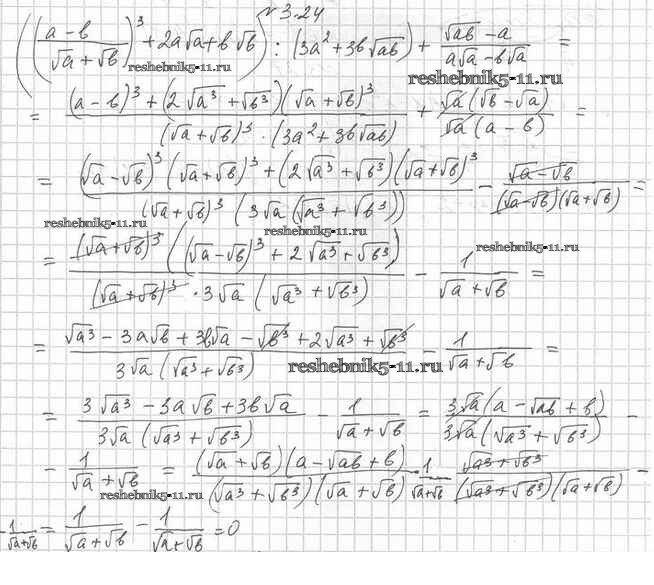 № 3.24
((a-в / √a+√в)³ + 2a√a + в√в) : (3a² + 3в√aв) + (√aв - a) / (a√a - в√a) =
reshebnik5-11.ru
reshebnik5-11.ru
= ((a-в)³ + (2√a³ + √в³)(√a+√в)³) / ((√a+√в)³ · (3a² + 3в√aв)) + √a(√в - √a) / √a(a-в) =
= ((√a-√в)³(√a+√в)³ + (2√a³ + √в³)(√a+√в)³) / ((√a+√в)³(3√a(√a³+√в³))) - (√a-√в) / (√a-√в)(√a+√в) =
reshebnik5-11.ru
reshebnik5-11.ru
reshebnik5-11.ru
= (√a+√в)³((√a-√в)³ + 2√a³ + √в³) / ((√a+√в)³ · 3√a(√a³ + √в³)) - 1 / (√a+√в) =
= (√a³ - 3a√в + 3в√a - √в³ + 2√a³ + √в³) / (3√a(√a³+√в³)) - 1 / (√a+√в) =
reshebnik5-11.ru
= (3√a³ - 3a√в + 3в√a) / (3√a(√a³+√в³)) - 1 / (√a+√в) = 3√a(a - √aв + в) / 3√a(√a³+√в³) -
- 1 / (√a+√в) = (√a+√в)(a-√aв+в) / (√a³+√в³)(√a+√в) - 1 / (√a+√в) (√a³+√в³) / (√a³+√в³)(√a+√в) -
reshebnik5-11.ru
- 1 / (√a+√в) = 1 / (√a+√в) - 1 / (√a+√в) = 0